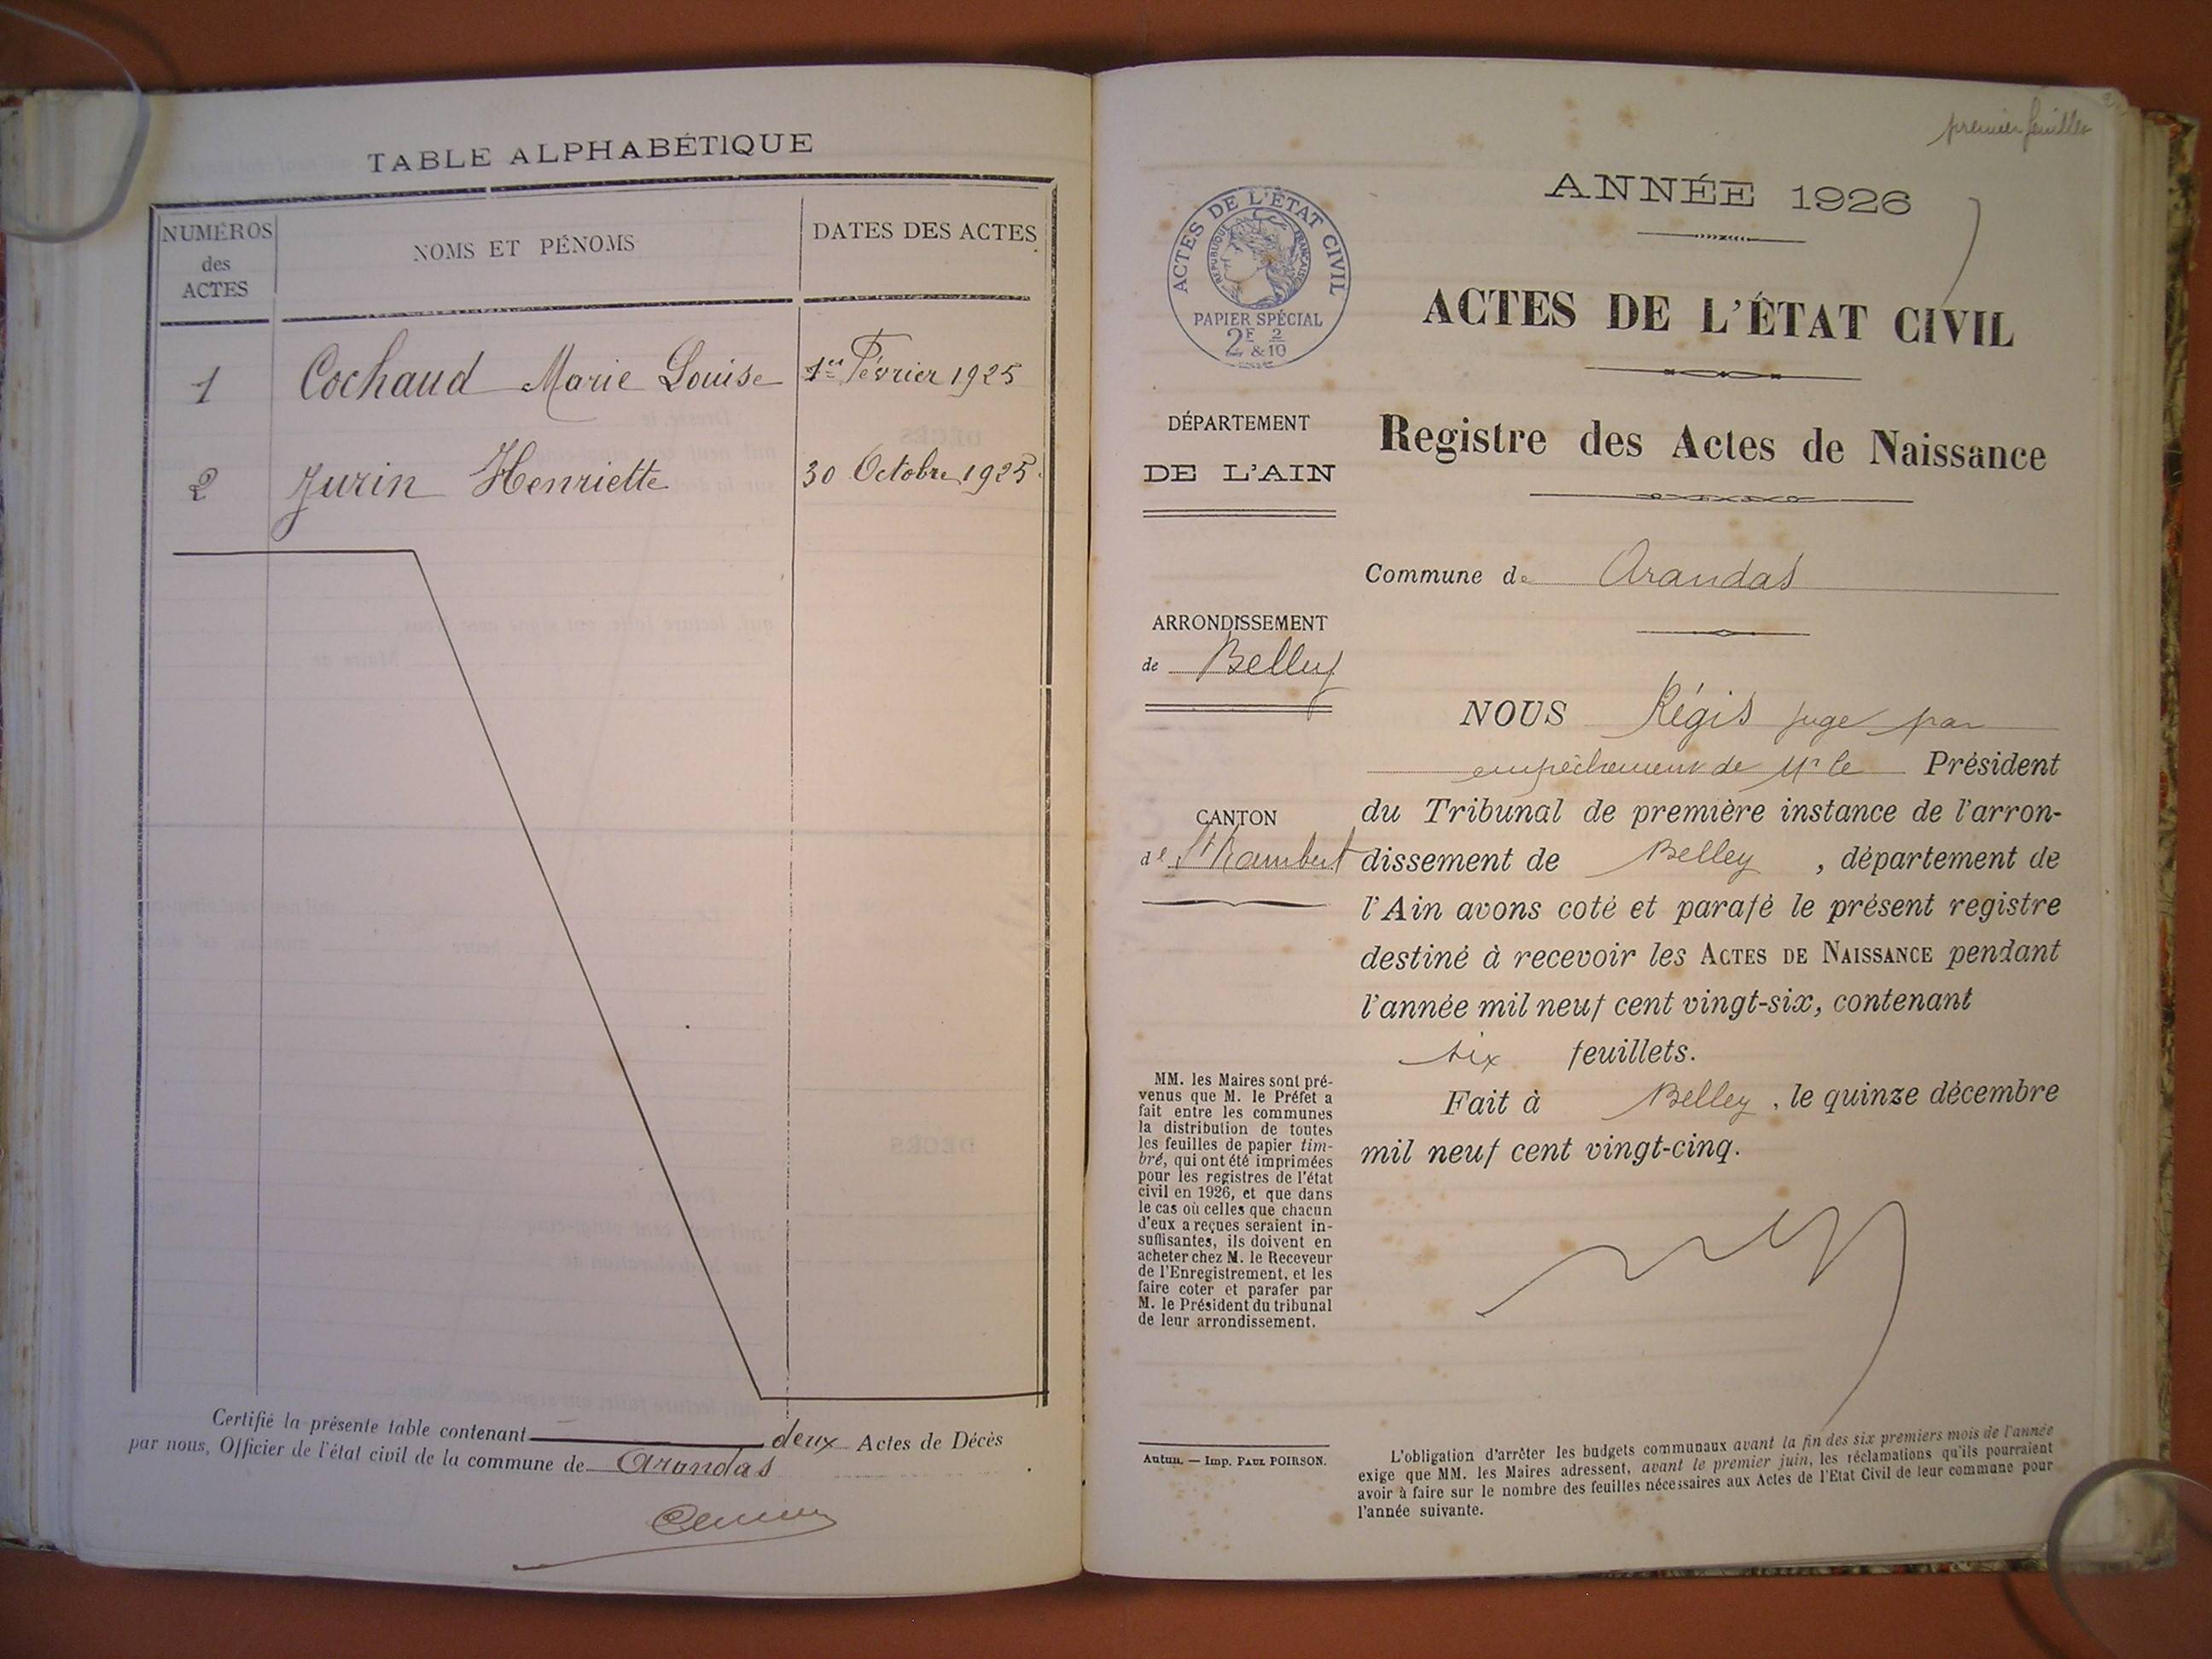 TABLE ALPHABÉTIQUE
NUMÉROS
des
ACTES
NOMS ET PÉNOMS
DATES DES ACTES
1 Cochaud Marie Louise 1er Février 1925
2 Jurin Henriette 30 Octobre 1925
Certifié la présente table contenant deux Actes de Décès
par nous, Officier de l'état civil de la commune de Arandas
premier feuillet
ANNÉE 1926
ACTES DE L'ÉTAT CIVIL
RÉPUBLIQUE FRANÇAISE
PAPIER SPÉCIAL
2F & 2/10
ACTES DE L'ÉTAT CIVIL
DÉPARTEMENT
DE L'AIN
Registre des Actes de Naissance
Commune de Arandas
ARRONDISSEMENT
de Belley
CANTON
de St Rambert
NOUS Régis juge par
empêchement de Mr le Président
du Tribunal de première instance de l'arron-
dissement de Belley , département de
l'Ain avons coté et parafé le présent registre
destiné à recevoir les ACTES DE NAISSANCE pendant
l'année mil neuf cent vingt-six, contenant
six feuillets.
Fait à Belley , le quinze décembre
mil neuf cent vingt-cinq.
MM. les Maires sont pré-
venus que M. le Préfet a
fait entre les communes
la distribution de toutes
les feuilles de papier tim-
bré, qui ont été imprimées
pour les registres de l'état
civil en 1926, et que dans
le cas où celles que chacun
d'eux a reçues seraient in-
suffisantes, ils doivent en
acheter chez M. le Receveur
de l'Enregistrement, et les
faire coter et parafer par
M. le Président du tribunal
de leur arrondissement.
Autun. — Imp. PAUL POIRSON.
L'obligation d'arrêter les budgets communaux avant la fin des six premiers mois de l'année
exige que MM. les Maires adressent, avant le premier juin, les réclamations qu'ils pourraient
avoir à faire sur le nombre des feuilles nécessaires aux Actes de l'Etat Civil de leur commune pour
l'année suivante.